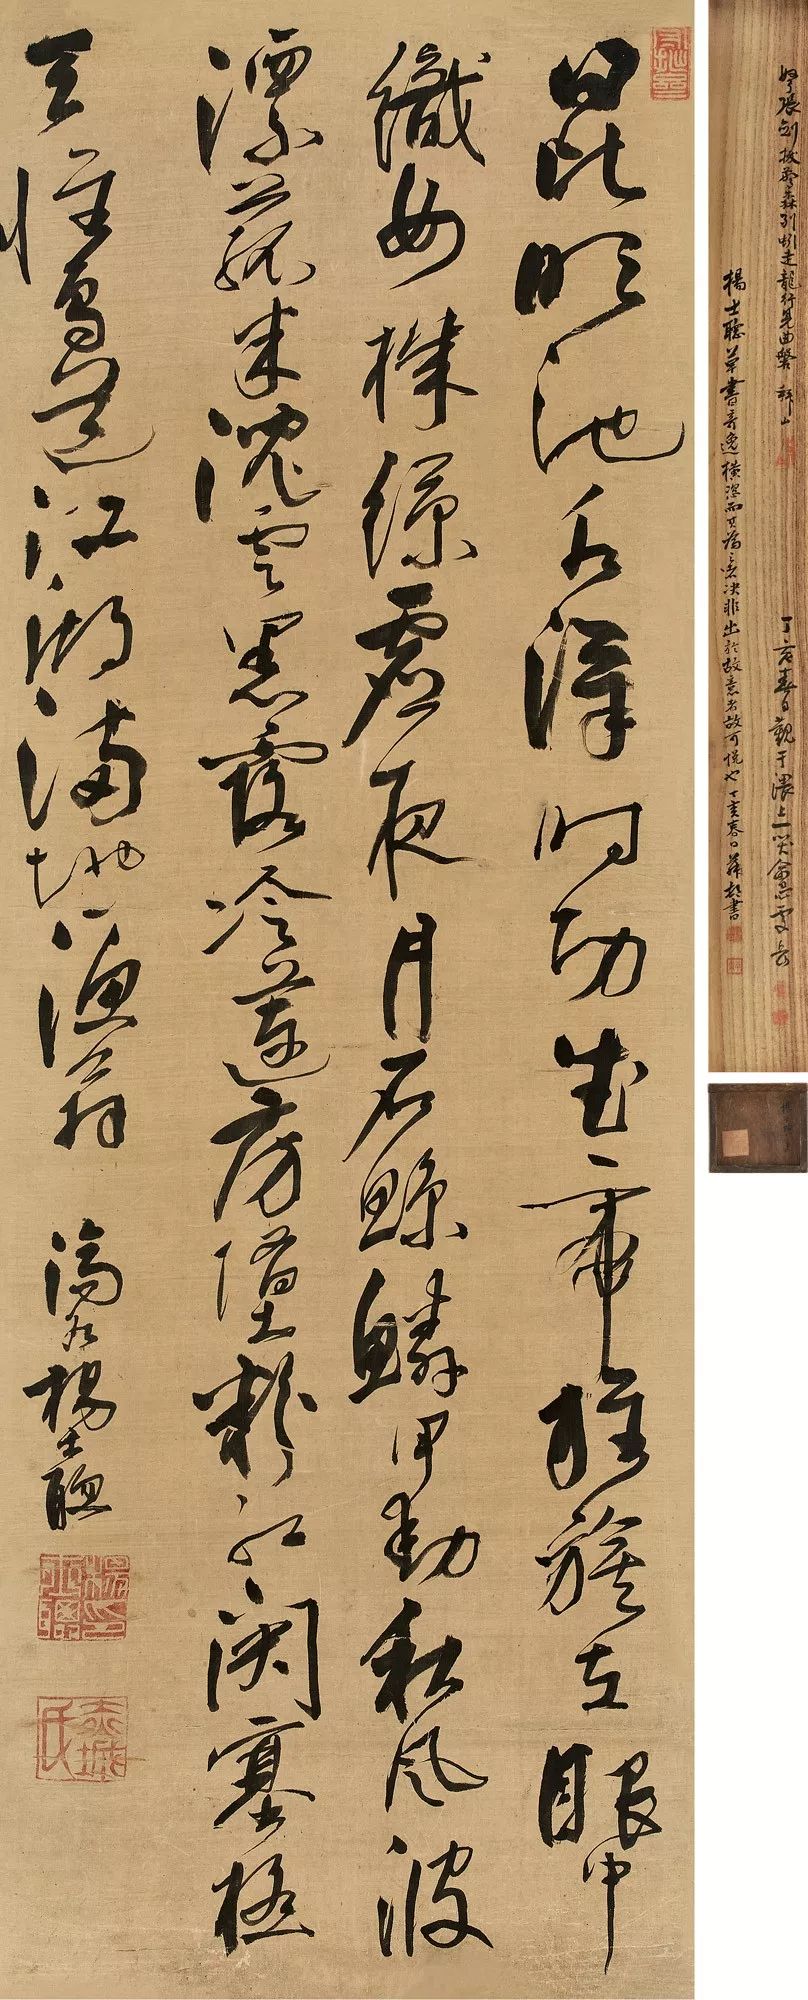 昆明池水漢時功武帝旌旗在眼中
織女機絲虛夜月石鯨鱗甲動秋風波
漂菰米沈雲黑露冷蓮房墜粉紅關塞極
天惟鳥道江湖滿地一漁翁 濟右楊士聰
楊士聰印
弩張劍拔森列走龍行見曲盤
丁亥春日觀于滬上
楊士聰草書奇逸橫決非出於故意者故可悅也丁亥春日書